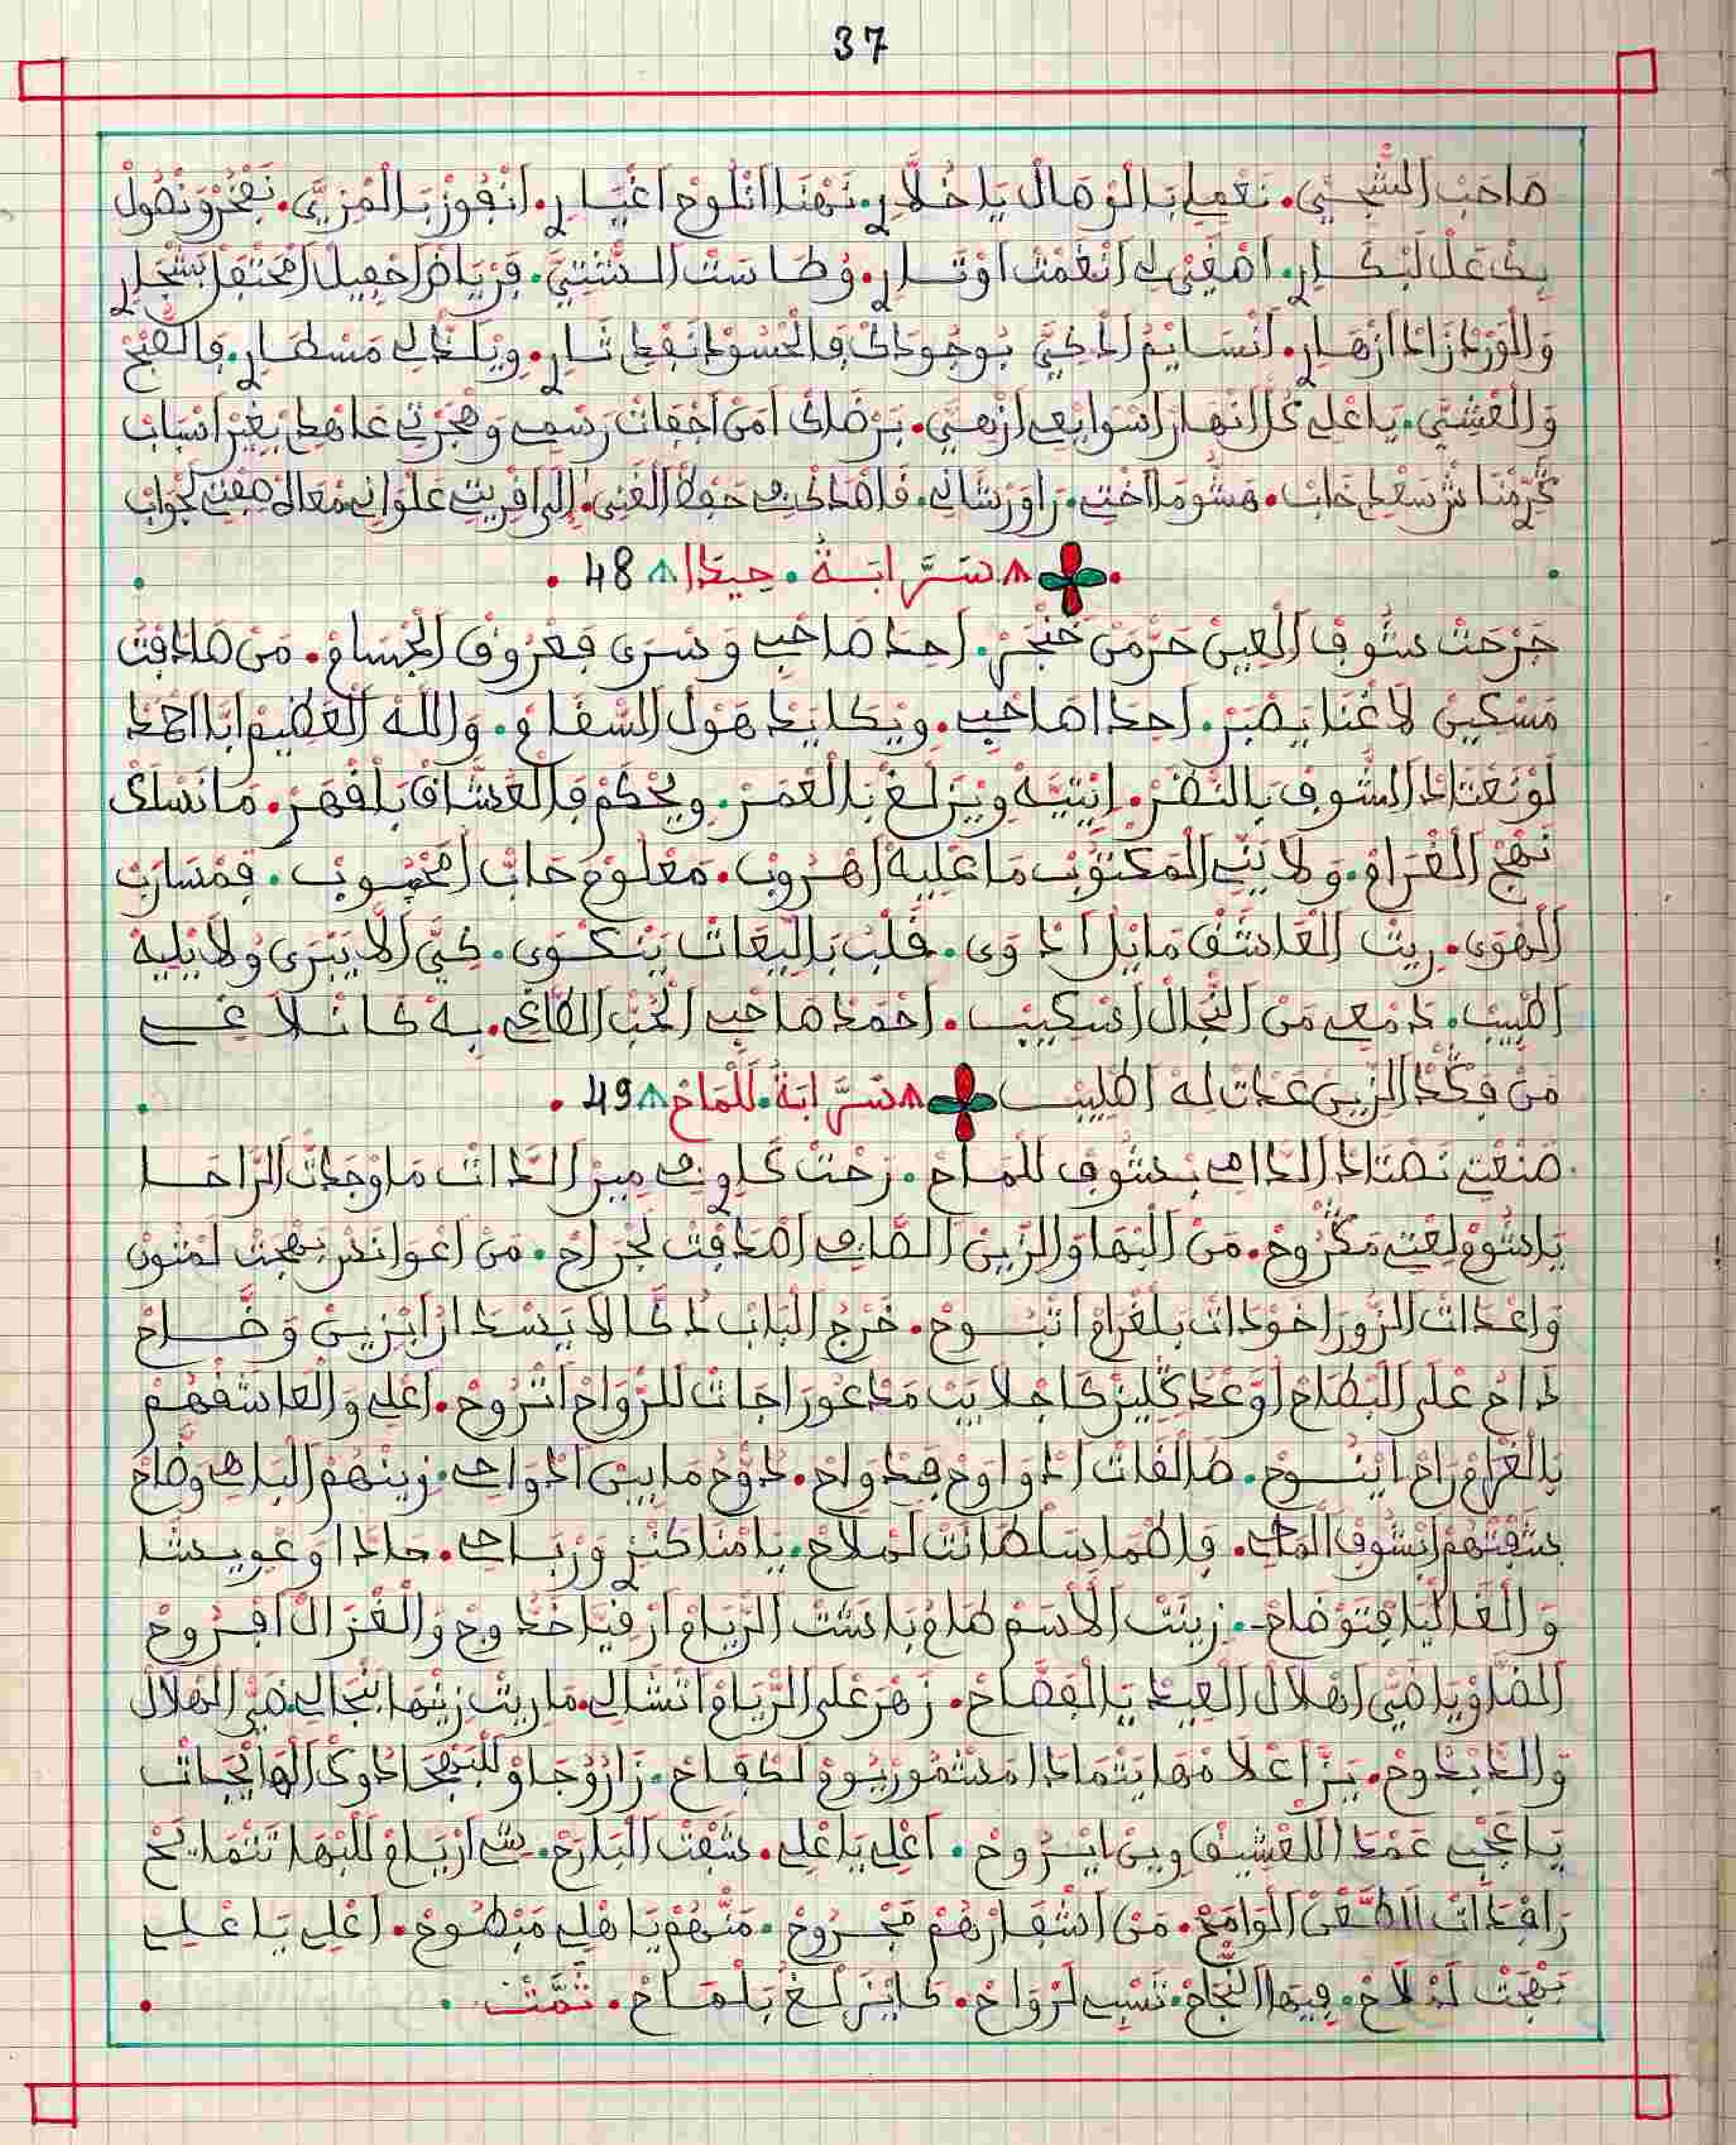 37
صاحب الشجني. نغمل بالوصال يا خلار. نهنا انلوح اغيار. انفوز بالمزيي. نفخر ونصول
بك عل لبكار. اصغى لي انغمت اوتار. وطاست الستيي. فرياض احفيل امحتفل بشجار
والورد زاد ازهار. انسايم الدكيي بوجودك فالحسود نفط ثار. ويلدلي مسطار. فالصبح
والعشيي. يا على كل انهار اسوايع ازهيي. برضاك امن اجفات رسمي وهجرني عاهد بغير اسباب
سعد خاب. هشوما اختي. راو رشاني. فاهد حفظ الغنى. علواني معاك لجواب
سرابة. حيدا 48
جرحت بشوف العين حرمن خنجر. احدا صاحب وسرى فعروق الجسام. من صادفت
مسكين لا غنا يصبر. احدا صاحب. ويكايد هول السقام. والله العظيم ابا احمد
لو نعتاد الشوف بالنضر. انتيه ويزلغ بالعمر. ويحكم فالعشاق بلقهر. ما نسلك
نهج الغرام. ولا يني المكتوب ما عليه اهروب. معلوم حاب امحبوب. فمسارب
الهوى. ريت العاشق مايل ادوى. قلب بالبعات ينكوى. كيي الا يبرى ولا يليه
اطبيب. دمعي من انجال اسكيب. احمد صاحب الحب الطاغي. به كانلاغي
من فكد الزين عدات له اطليب سرابة. للماح 49
صنعتي نصتاد الدامي بشوف للماح. رحت كاوي ميز الدات ما وجدت الراحا
يا بشوق لعتي مكروح. من البها والزين الصافي اصدفت لجراح. من اعوانس بهجت لمتون
واغدات الزور اخودات بلغرام اتبوح. خرج الباب دكالا يسدار ابزين وضاح
داح على البطاح اوعد كليز كاجلايب مدعور اجات للرواح اتروح. اعلي والعاشقهم
بالغرام راح اينوح. طالقات ادواوح فدواح. دوح مابين ادواحي. زينهم الباهي وضاح
بشفتهم انشوف المحي. فاطما سلطانت لملاح. يامنا كنز ورباحي. حادا وعويشا
والغاليا فتوضاح. زينت الاسم طام باشت الريام ارقيا خدوج والغزال افروح
الضاويا ضي اهلال العيد بالفصاح. زهر على الريام اتشالي. ماريت زينها بنجالي. ضي الهلال
والدابدوح. يزا علامها يتمادا مشهور بيوم لكفاح. زاروجاو للبهجا دوك الهايجات
ياعجبي عمدا للعشيق وين ايروح. اعلي يا علي. شفت البارح. شي اريام للبها تتمايح
رافدات الطعن الوامح. من اشفارهم مجروح. منهم يا هلي مبطوح. اعلي يا علي
بهجت لدلاح. فيها النجاح. تسبي لرواح. كايزلغ بلماح. تمت